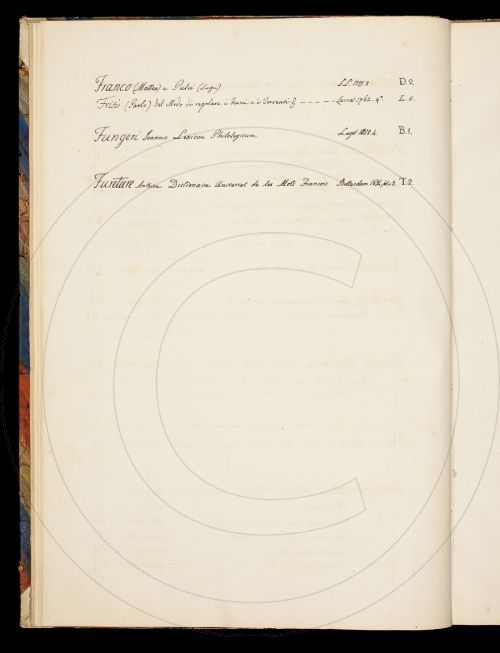 Franco (Matteo) e Pulci (Luigi) S.L. 1759. 8. D.2.
Frisi (Paolo) Del Modo di regolare i Fiumi e i Torrenti &c - - - - - Lucca 1762. 4° L.5.
Fungeri Joannis Lexicon Philologicum Lugd. 4. B.1.
Furetiere Antoine Dictionaire Universel de les Mots Francois Rotterdam T.2.